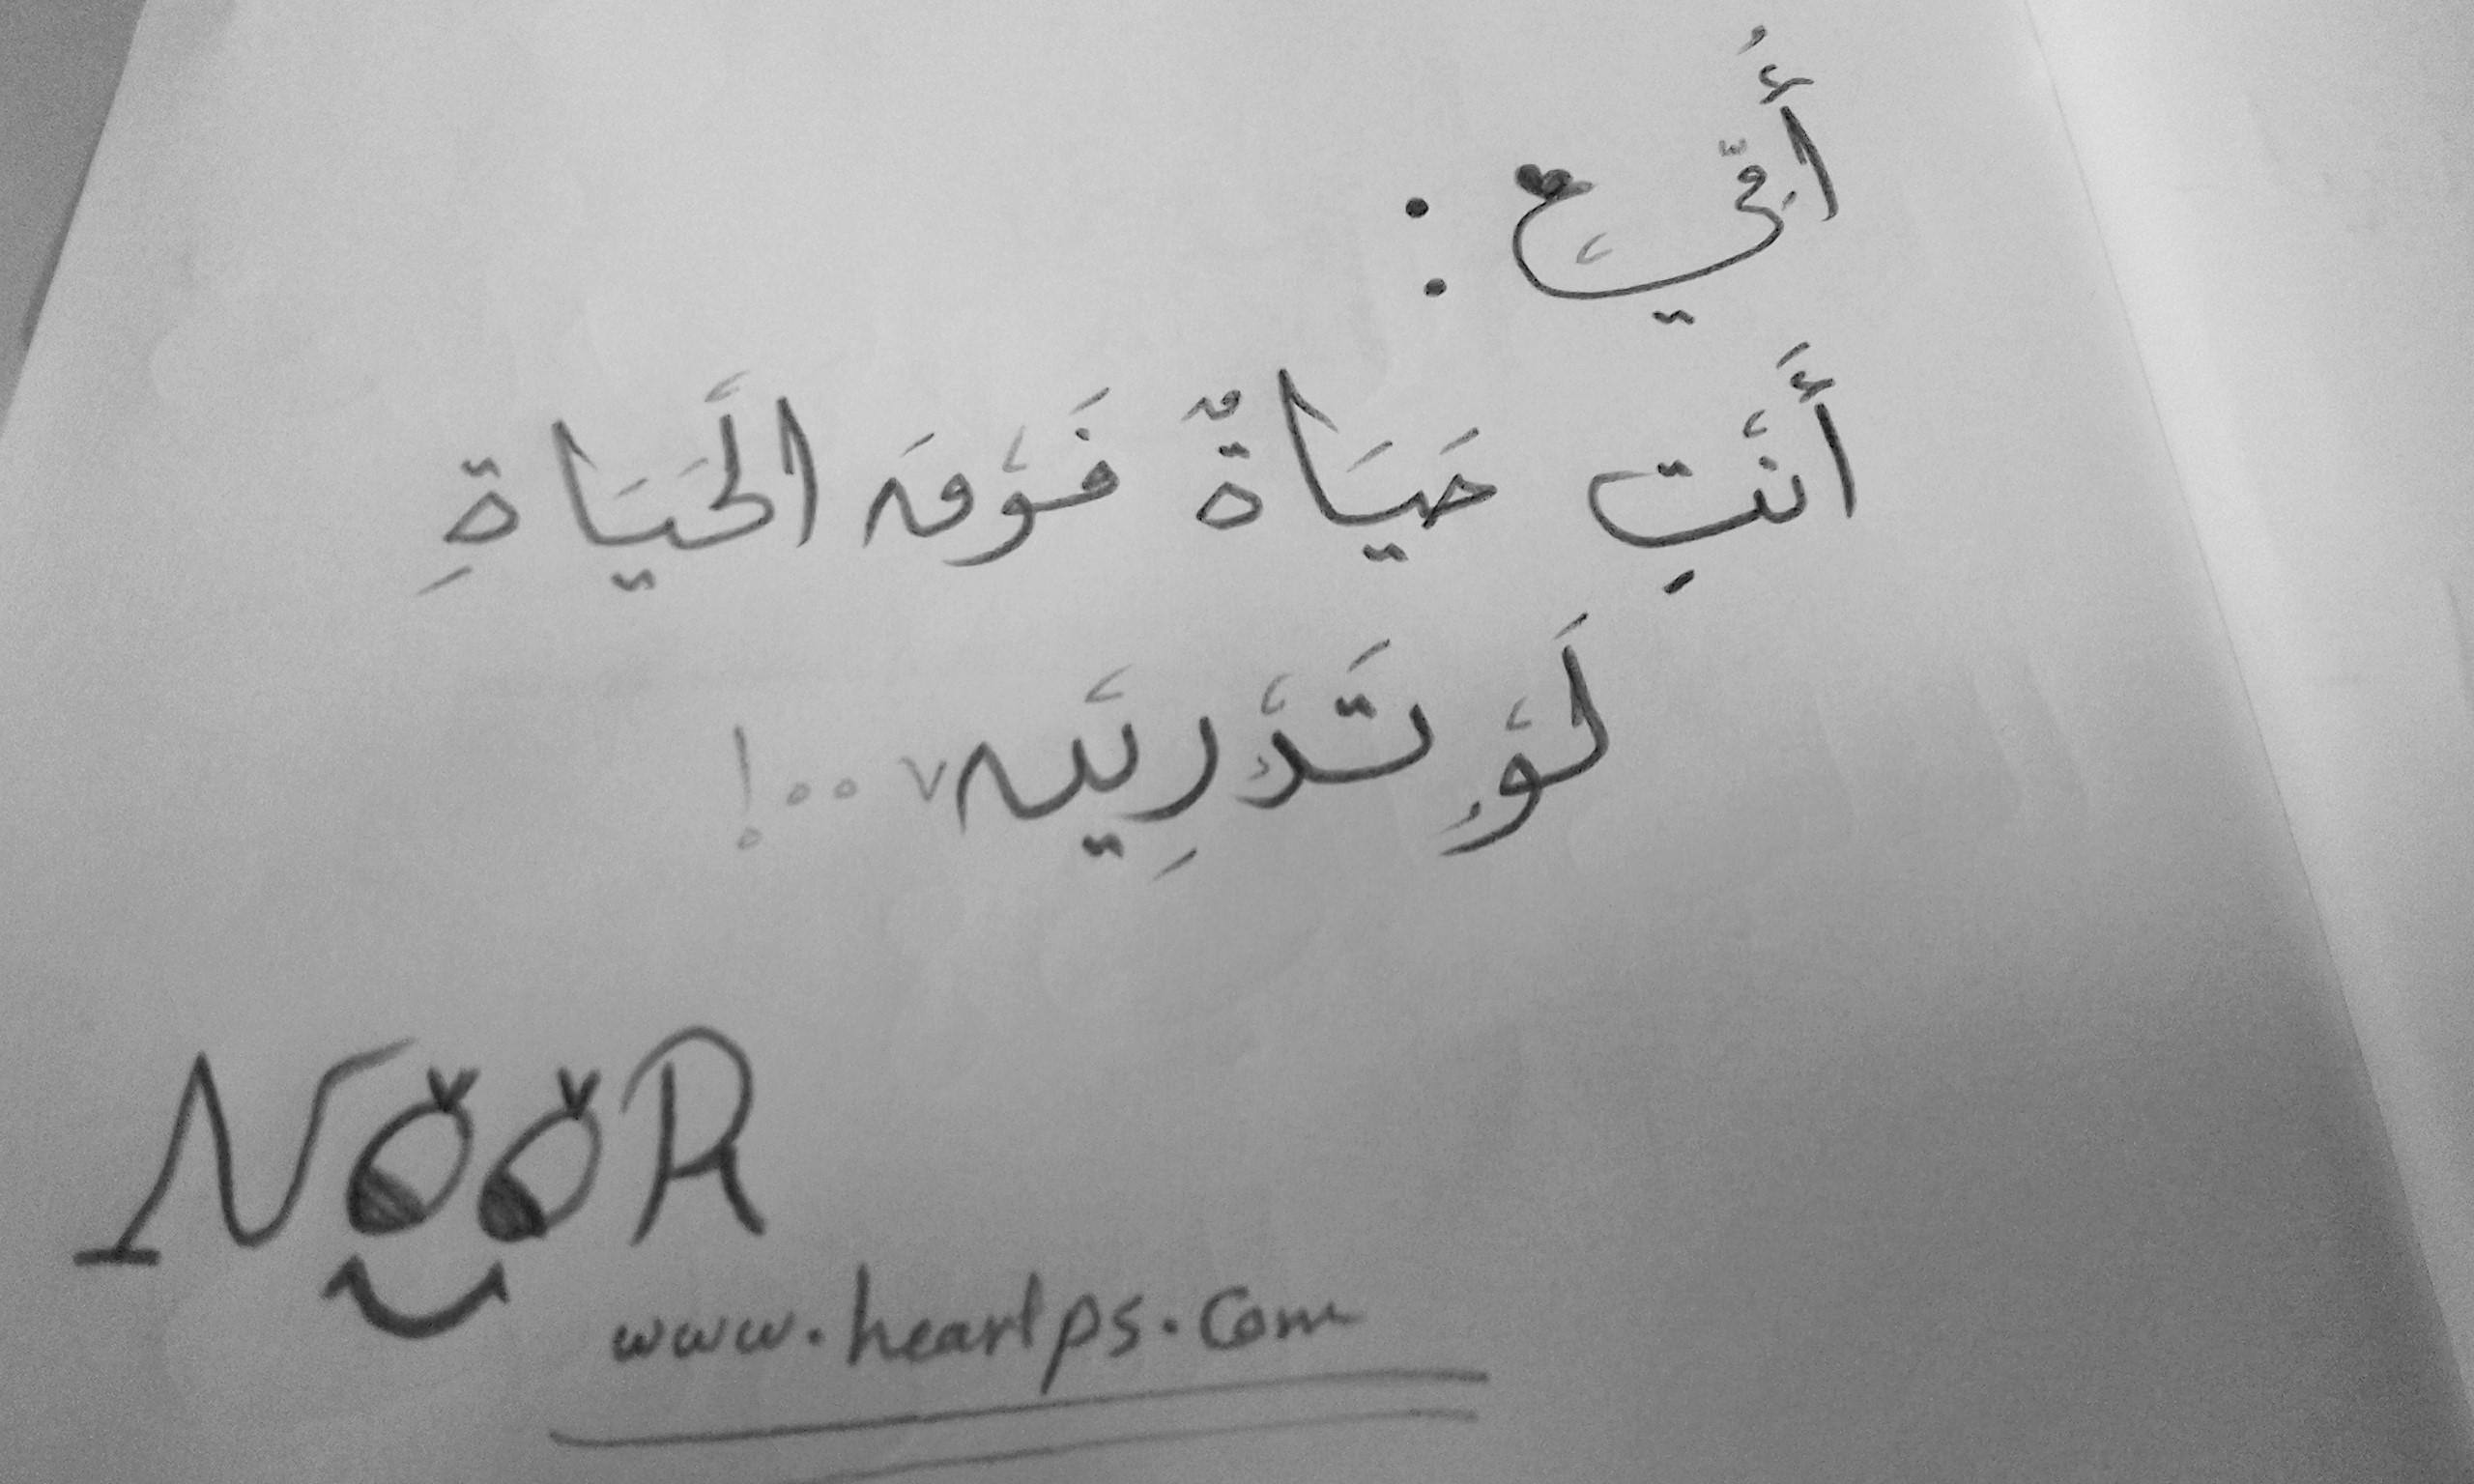 أُمِّي :
أَنْتِ حَيَاةٌ فَوْقَ الْحَيَاةِ
لَوْ تَدْرِيْن ..!
NOOR
www.heartps.com